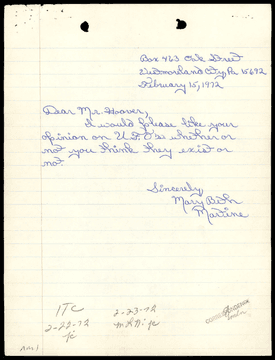 Box 463 Oak Street
Westmoreland City, Pa. 15692
February 15, 1972
Dear Mr. Hoover,
I would please like your
opinion on U.F.O's whether or
not you think they exist or
not.
Sincerely,
Mary Beth
Martine
ITC
2-22-72
jc
2-23-72